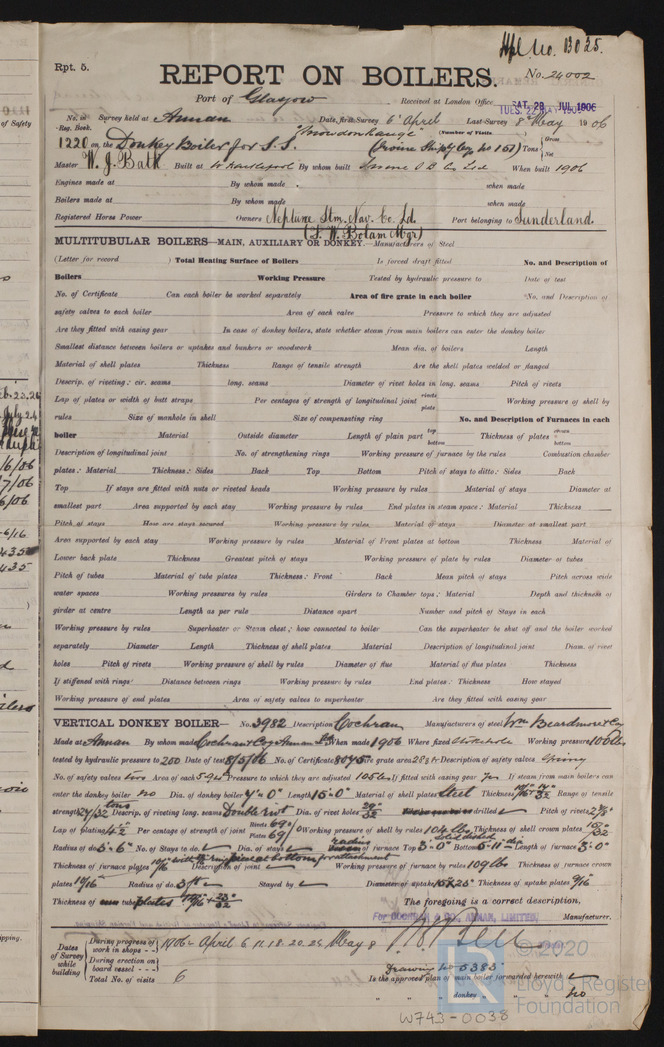 Hpl. No. 13025.
Rpt. 5.
REPORT ON BOILERS.
No. 24002
Port of Glasgow
Received at London Office
SAT. 28 JUL 1906
TUES. 22 MAY 1906
No. in Survey held at Annan Date, first Survey 6th April Last Survey 8th May 1906
Reg. Book. "Snowdon Range" (Number of Visits
1220 on the Donkey Boiler for S.S. (Irvine Shipbldg No 157) Tons Gross Net
Master W. J. Batt Built at W. Hartlepool By whom built Irvine S B Co Ltd When built 1906
Engines made at By whom made when made
Boilers made at By whom made when made
Registered Horse Power Owners Neptune Stm. Nav. Co. Ld. Port belonging to Sunderland
(F. W. Bolam Mgr)
MULTITUBULAR BOILERS—MAIN, AUXILIARY OR DONKEY.—Manufacturers of Steel
(Letter for record ) Total Heating Surface of Boilers Is forced draft fitted No. and Description of
Boilers Working Pressure Tested by hydraulic pressure to Date of test
No. of Certificate Can each boiler be worked separately Area of fire grate in each boiler No. and Description of
safety valves to each boiler Area of each valve Pressure to which they are adjusted
Are they fitted with easing gear In case of donkey boilers, state whether steam from main boilers can enter the donkey boiler
Smallest distance between boilers or uptakes and bunkers or woodwork Mean dia. of boilers Length
Material of shell plates Thickness Range of tensile strength Are the shell plates welded or flanged
Descrip. of riveting: cir. seams long. seams Diameter of rivet holes in long. seams Pitch of rivets
Lap of plates or width of butt straps Per centages of strength of longitudinal joint rivets plate Working pressure of shell by
rules Size of manhole in shell Size of compensating ring No. and Description of Furnaces in each
boiler Material Outside diameter Length of plain part top bottom Thickness of plates crown bottom
Description of longitudinal joint No. of strengthening rings Working pressure of furnace by the rules Combustion chamber
plates: Material Thickness: Sides Back Top Bottom Pitch of stays to ditto: Sides Back
Top If stays are fitted with nuts or riveted heads Working pressure by rules Material of stays Diameter at
smallest part Area supported by each stay Working pressure by rules End plates in steam space: Material Thickness
Pitch of stays How are stays secured Working pressure by rules Material of stays Diameter at smallest part
Area supported by each stay Working pressure by rules Material of Front plates at bottom Thickness Material of
Lower back plate Thickness Greatest pitch of stays Working pressure of plate by rules Diameter of tubes
Pitch of tubes Material of tube plates Thickness: Front Back Mean pitch of stays Pitch across wide
water spaces Working pressures by rules Girders to Chamber tops: Material Depth and thickness of
girder at centre Length as per rule Distance apart Number and pitch of Stays in each
Working pressure by rules Superheater or Steam chest; how connected to boiler Can the superheater be shut off and the boiler worked
separately Diameter Length Thickness of shell plates Material Description of longitudinal joint Diam. of rivet
holes Pitch of rivets Working pressure of shell by rules Diameter of flue Material of flue plates Thickness
If stiffened with rings Distance between rings Working pressure by rules End plates: Thickness How stayed
Working pressure of end plates Area of safety valves to superheater Are they fitted with easing gear
VERTICAL DONKEY BOILER— No. 3982 Description Cochran Manufacturers of steel Wm Beardmore & Coy
Made at Annan By whom made Cochran & Coy Annan Ltd When made 1906 Where fixed Stokehole Working pressure 100 lbs
tested by hydraulic pressure to 200 Date of test 8/5/06 No. of Certificate 8045 Fire grate area Description of safety valves Spring
No. of safety valves two Area of each 5.94 Pressure to which they are adjusted 105 lbs If fitted with easing gear Yes If steam from main boilers can
enter the donkey boiler no Dia. of donkey boiler 7'-0" Length 15'-0" Material of shell plates Steel Thickness Range of tensile
strength 27/32 tons Descrip. of riveting long. seams Double rivt Dia. of rivet holes 29/32 drilled Pitch of rivets
Lap of plating 4 1/2 Per centage of strength of joint Rivets 69 Plates 69 Working pressure of shell by rules 104 lbs Thickness of shell crown plates 15/32
Radius of do. 3'-6" No. of Stays to do. Dia. of stays radius of furnace Top 3'-0" Bottom 5'-11" dia Length of furnace 3'-0"
Thickness of furnace plates Description of joint Working pressure of furnace by rules 109 lbs Thickness of furnace crown
plates 10/16 Radius of do. 3 ft Stayed by Diameter of uptake 15 x 25 Thickness of uptake plates 9/16
Thickness of tube plates
The foregoing is a correct description,
For COCHRAN & CO., ANNAN, LIMITED, Manufacturer.
Dates of Survey while building
During progress of work in shops - - 1906:- April 6. 11. 18. 20. 25 May 8
During erection on board vessel - - -
Total No. of visits 6
Drawing No 5385
Is the approved plan of main boiler forwarded herewith
" " " donkey " " " No
W743-0038
© 2020
Lloyd's Register
Foundation